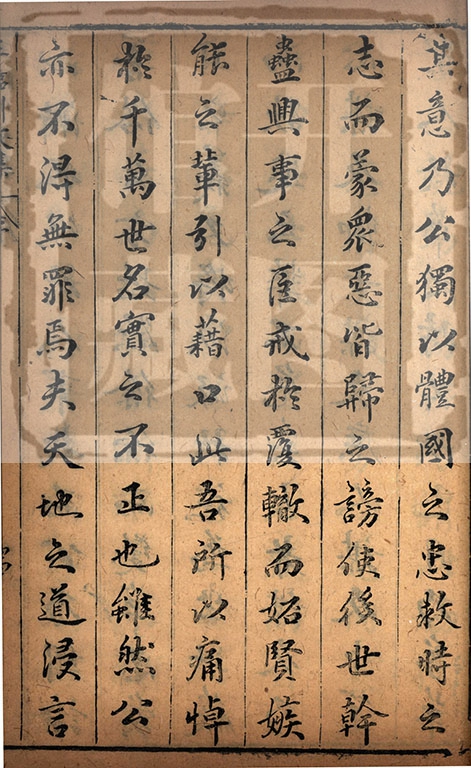 其意乃公獨以體國之忠救時之
志而蒙眾惡皆歸之謗使後世幹
蠱興事之臣戒於覆轍而妬賢嫉
能之輩引以藉口此吾所以痛悼
於千萬世名實之不正也雖然公
亦不得無罪焉夫天地之道浸言